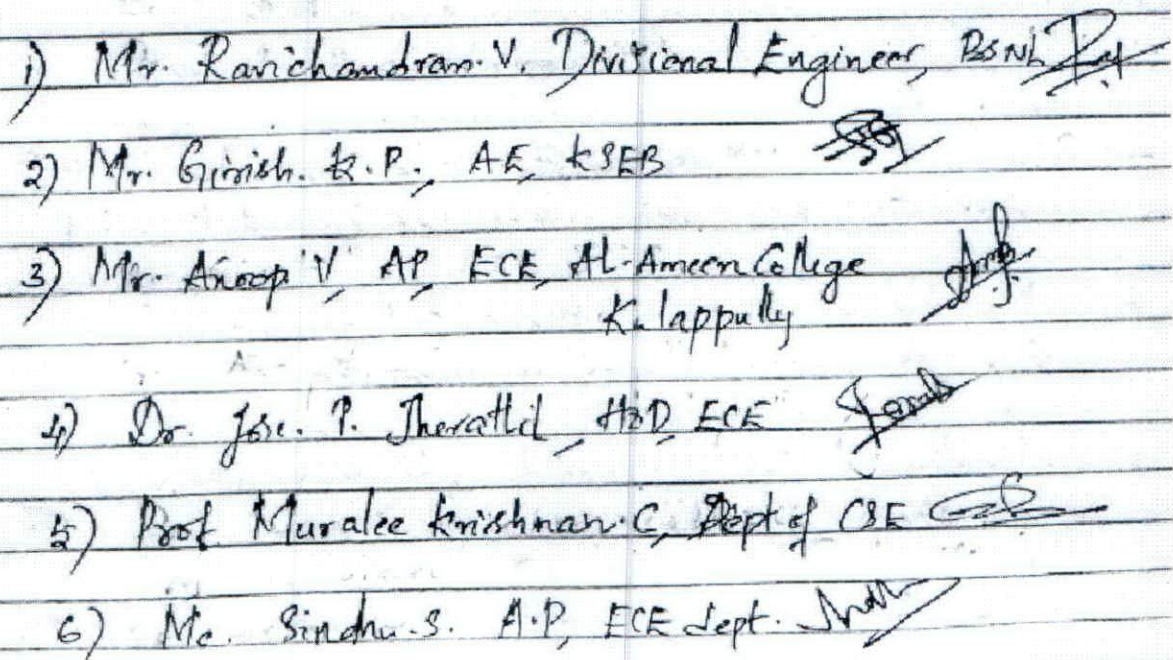 1) Mr. Ravichandran. V, Divisional Engineer, BSNL
2) Mr. Girish. K.P., AE, KSEB
3) Mr. Anoop V, AP, ECE, AL-Ameen College
Kulappully
4) Dr. Jose. P. Therattil, HOD, ECE
5) Prof Muralee Krishnan. C, Dept of CSE
6) Ms. Sindhu. S. A.P, ECE dept.